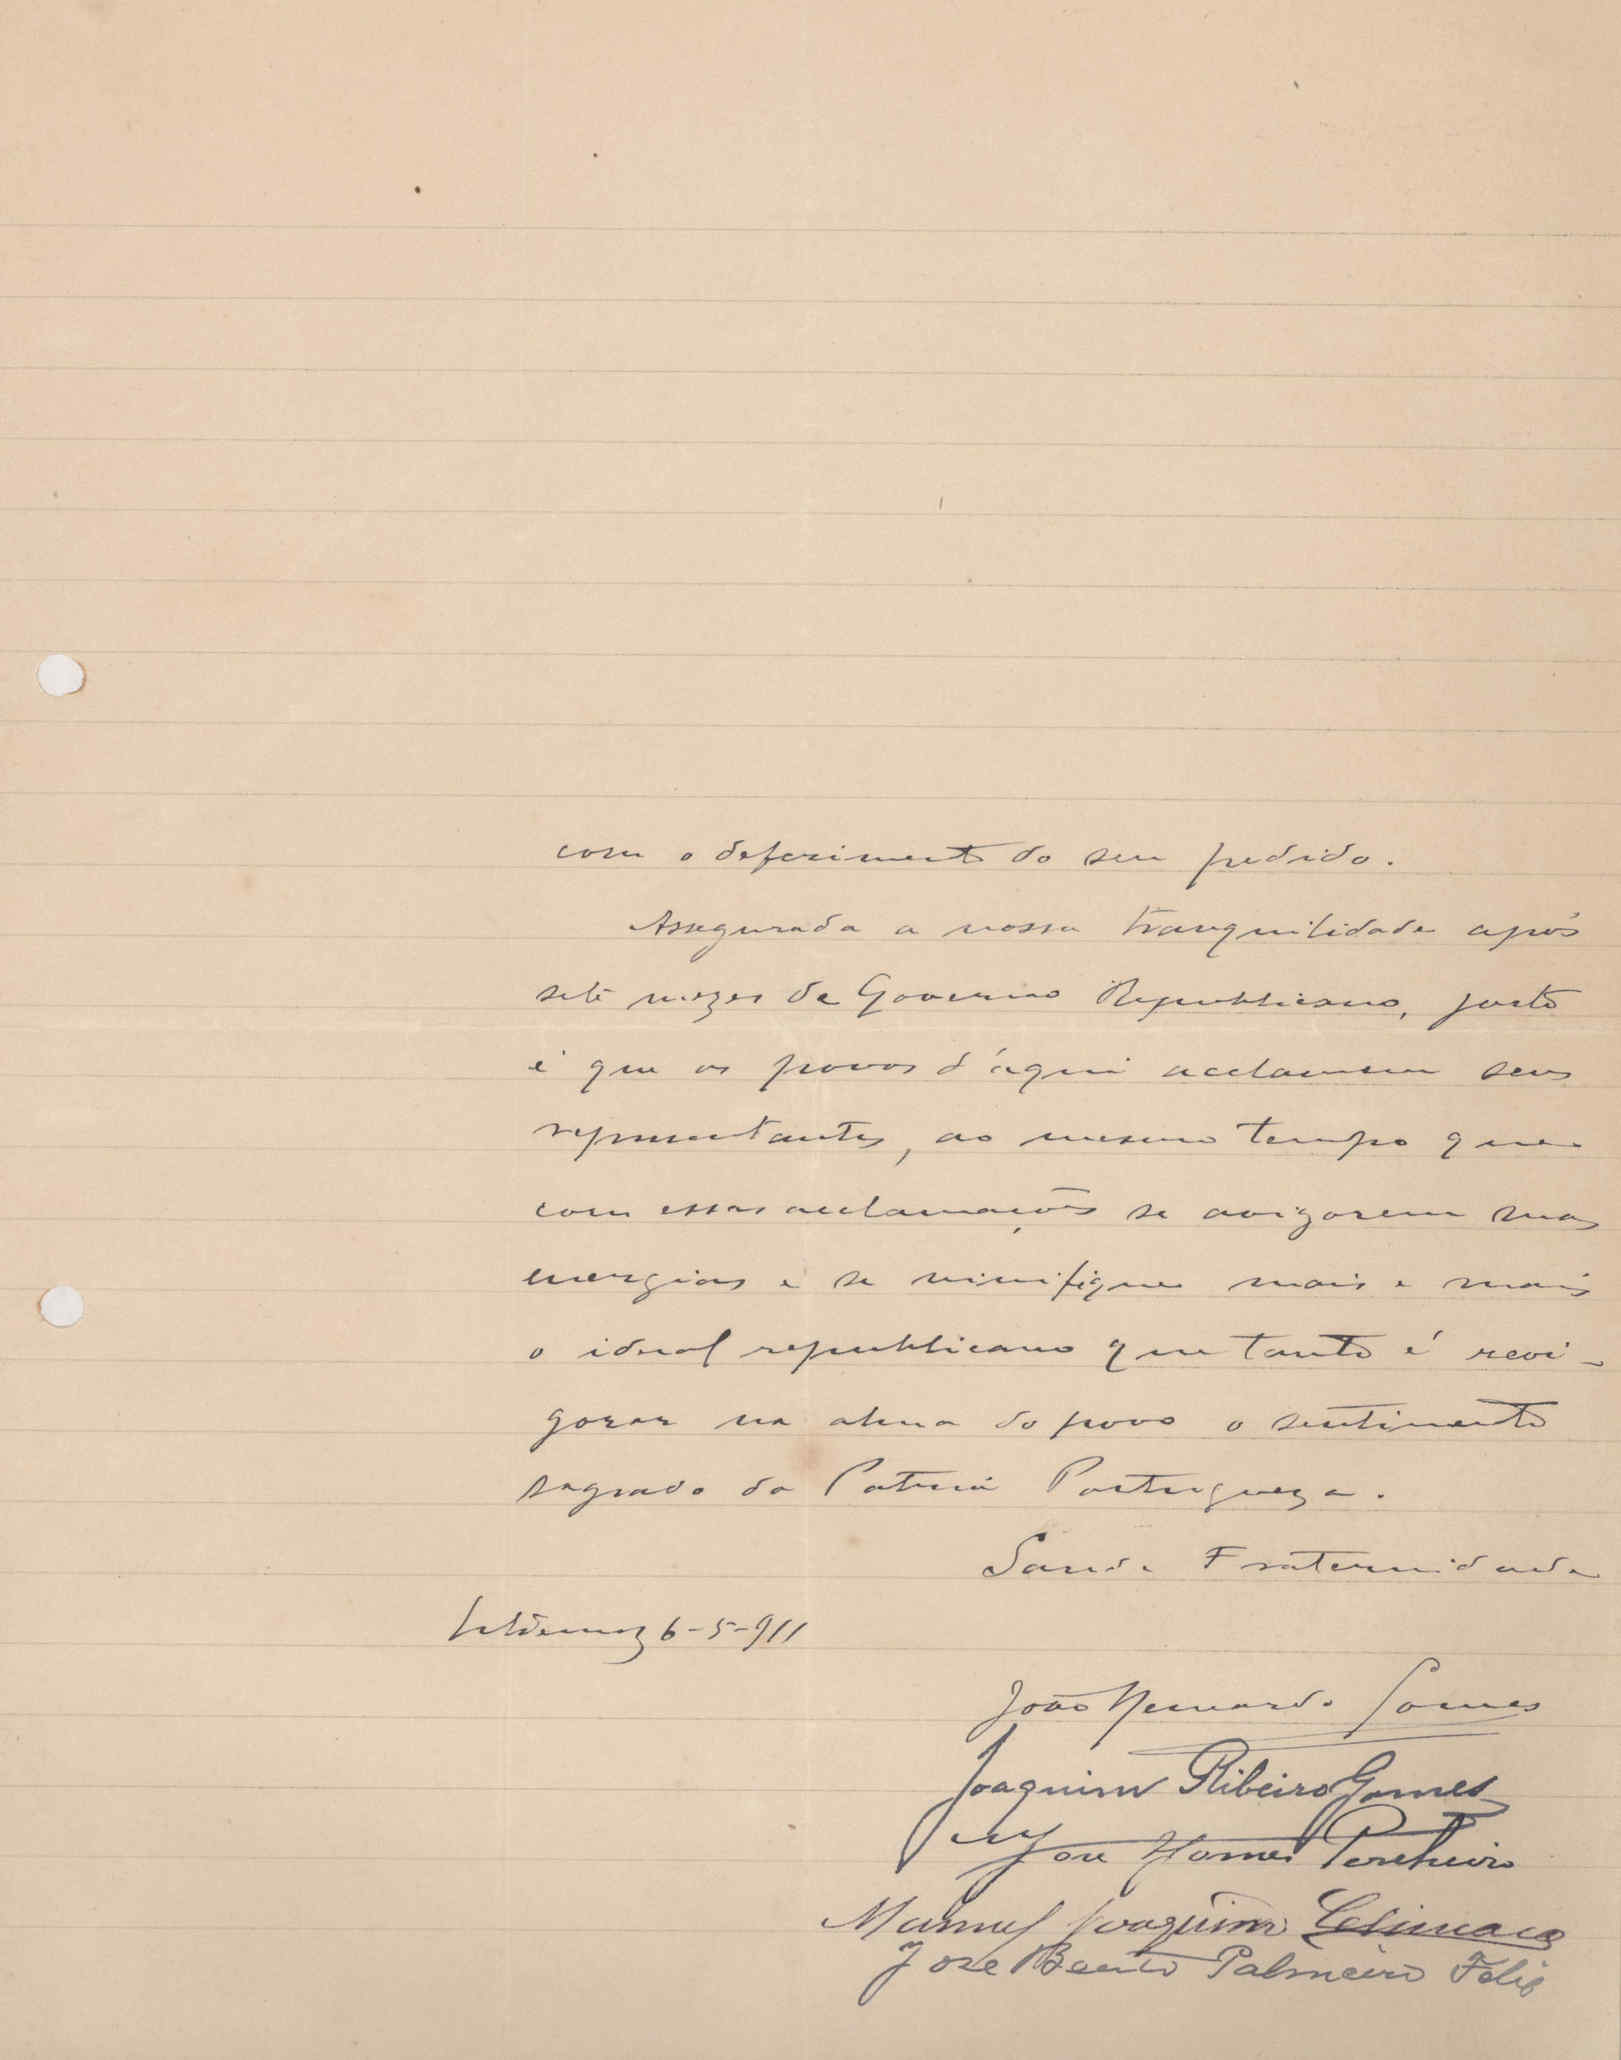 com o deferimento do seu pedido.
Assegurada a nossa tranquilidade após
sete mezes de Governo Republicano, justo
é que os povos d'áqui acclamem seus
representantes, ao mesmo tempo que
com essas acclamações se avigorem suas
energias e se vivifique mais e mais
o ideal republicano que tanto é revi-
gorar na alma do povo o sentimento
sagrado da Patria Portugueza.
Saude Fraternidade
6-5-911
João Bernardo Gomes
Joaquim Ribeiro Gomes
José Gomes
Manuel Joaquim Climaco
José Bento Palmeiro Felix